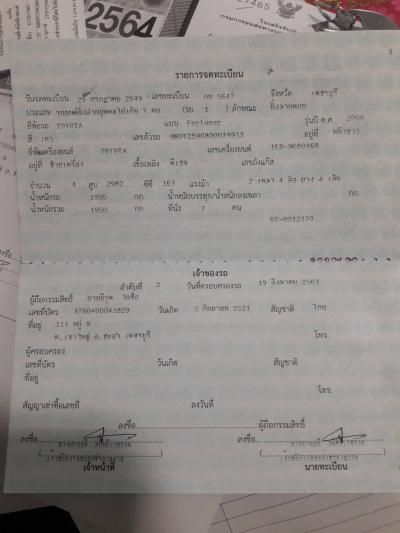 2564
27465
รายการจดทะเบียน
วันจดทะเบียน 25 กรกฎาคม 2549 เลขทะเบียน กบ 5647 จังหวัด เพชรบุรี
ประเภท รถยนต์นั่งส่วนบุคคลไม่เกิน 7 คน (รย. 1 ) ลักษณะ
ยี่ห้อรถ TOYOTA แบบ Fortuner รุ่นปี ค.ศ. 2006
สี เทา เลขตัวรถ MR0YZ59G800039913 อยู่ที่
ยี่ห้อเครื่องยนต์ TOYOTA เลขเครื่องยนต์ 1KD-9680468
อยู่ที่ เชื้อเพลิง ดีเซล เลขถังแก๊ส
จำนวน 4 สูบ 2982 ซีซี 163 แรงม้า 2 เพลา 4 ล้อ ยาง 4 เส้น
น้ำหนักรถ 1950 กก. น้ำหนักบรรทุก/น้ำหนักลงเพลา กก.
น้ำหนักรวม 1950 กก. ที่นั่ง 7 คน
57-0032139
เจ้าของรถ
ลำดับที่ 2 วันที่ครอบครองรถ 19 สิงหาคม 2563
ผู้ถือกรรมสิทธิ์
เลขที่บัตร 3760400041829 วันเกิด 2 กันยายน 2521 สัญชาติ ไทย
ที่อยู่ 111 หมู่ 9
อ.ชะอำ เพชรบุรี โทร.
ผู้ครอบครอง
เลขที่บัตร วันเกิด สัญชาติ
ที่อยู่
โทร.
สัญญาเช่าซื้อเลขที่ ลงวันที่
ลงชื่อ ผู้ถือกรรมสิทธิ์
ลงชื่อ ลงชื่อ
เจ้าหน้าที่ นายทะเบียน